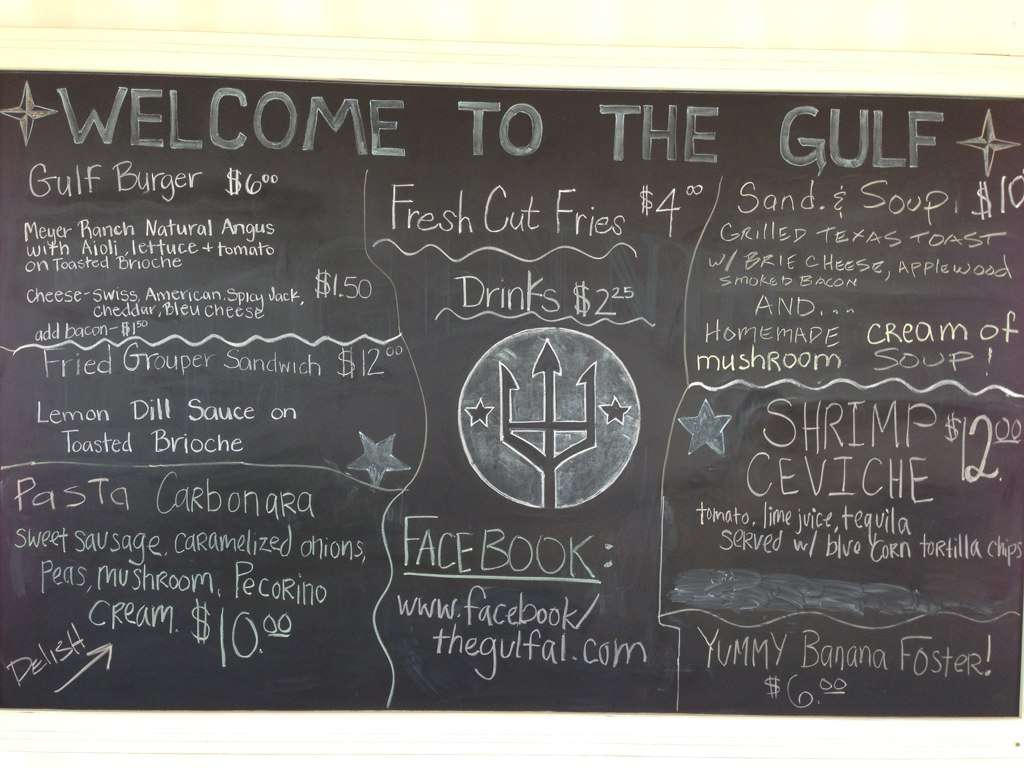 WELCOME TO THE GULF
Gulf Burger $6.00
Meyer Ranch Natural Angus
with Aioli, lettuce + tomato
on Toasted Brioche
Cheese-Swiss, American, Spicy Jack, $1.50
cheddar, Bleu Cheese
add bacon-$1.50
Fried Grouper Sandwich $12.00
Lemon Dill Sauce on
Toasted Brioche
Pasta Carbonara
sweet sausage, caramelized onions,
Peas, mushroom, Pecorino
Cream. $10.00
DELISH
Fresh Cut Fries $4.00
Drinks $2.25
FACEBOOK:
www.facebook/
thegulfal.com
Sand. & Soup $10
GRILLED TEXAS TOAST
W/ BRIE CHEESE, APPLEWOOD
SMOKED BACON
AND...
HOMEMADE CREAM OF
mushroom SOUP!
SHRIMP $12.00
CEVICHE
tomato, lime juice, tequila
served w/ blue corn tortilla chips
YUMMY Banana Foster!
$6.00